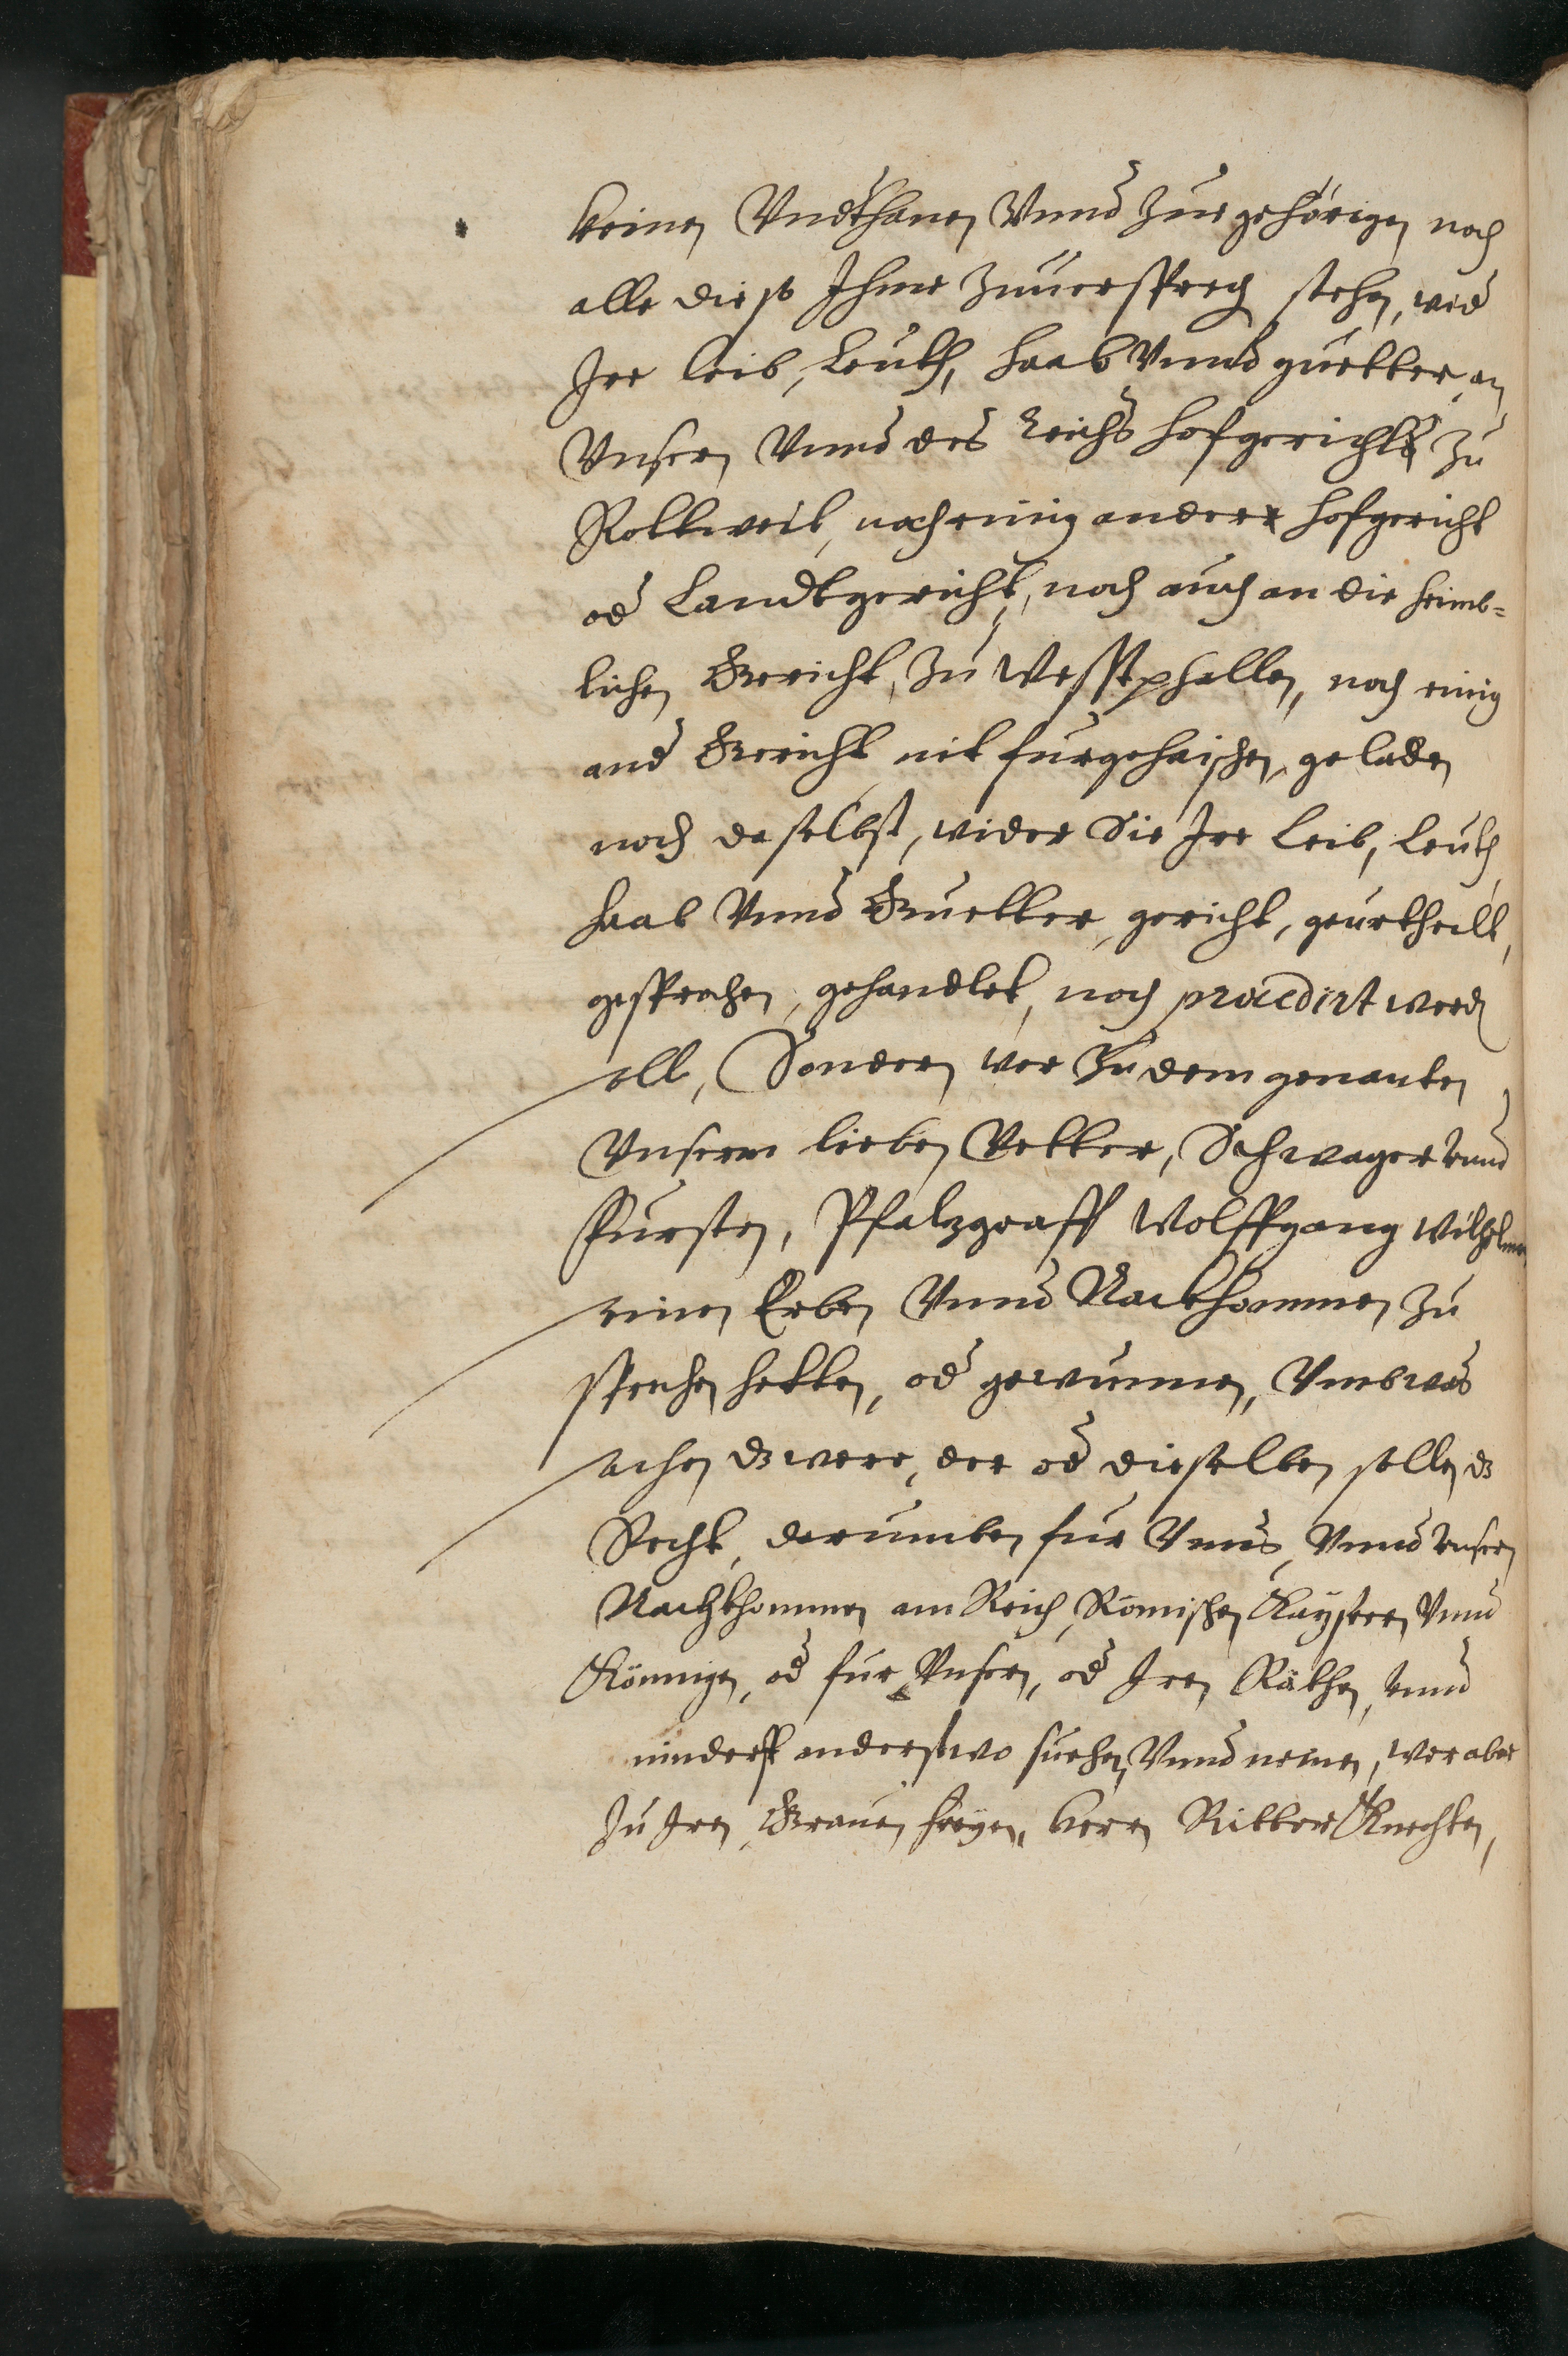 keinen Vndthanen Vnnd Zuegehörigen noch
alle die so Ihme Zuuersprech stehn, wid
Irr leib, Leuth, haab Vnnd guetter, an
Vnsern Vnnd des Reichs hofgericht zu
Rottweil, noch einig andere hofgericht
od Landtgericht, noch auch an die heimb-
lichen Gericht, Zu Westphallen, noch einig
and Gericht nit furgehaischen, geladen
noch daselbst, wider Sie Irr Leib, Leuth
haab Vnnd Guetter, gericht, geurtheilt,
gesprochen, gehandlet, noch procedirt werd
soll, Sondern wer Zu dem genanten
Vnserm lieben Vetter, Schwager vnnd
Fürsten, Pfalzgraff Wolffgang Wilhelm
seinen Erben Vnnd Nackhommen Zu
sprechen hetten, od gewunnen, Vmbwas
sachen dz were, der od dieselben sollen dz
Recht, darumben fur Vnns, Vnnd vnsern
Nachkhommen am Reich, Römischen Kaysern Vnnd
Königen, od fur Vnsern, od Iren Räthen, vnnd
ninderst anderstwo suchen, Vnnd nemen, wer aber
Zu Iren Grauen freyen, herrn Ritter Knechten,